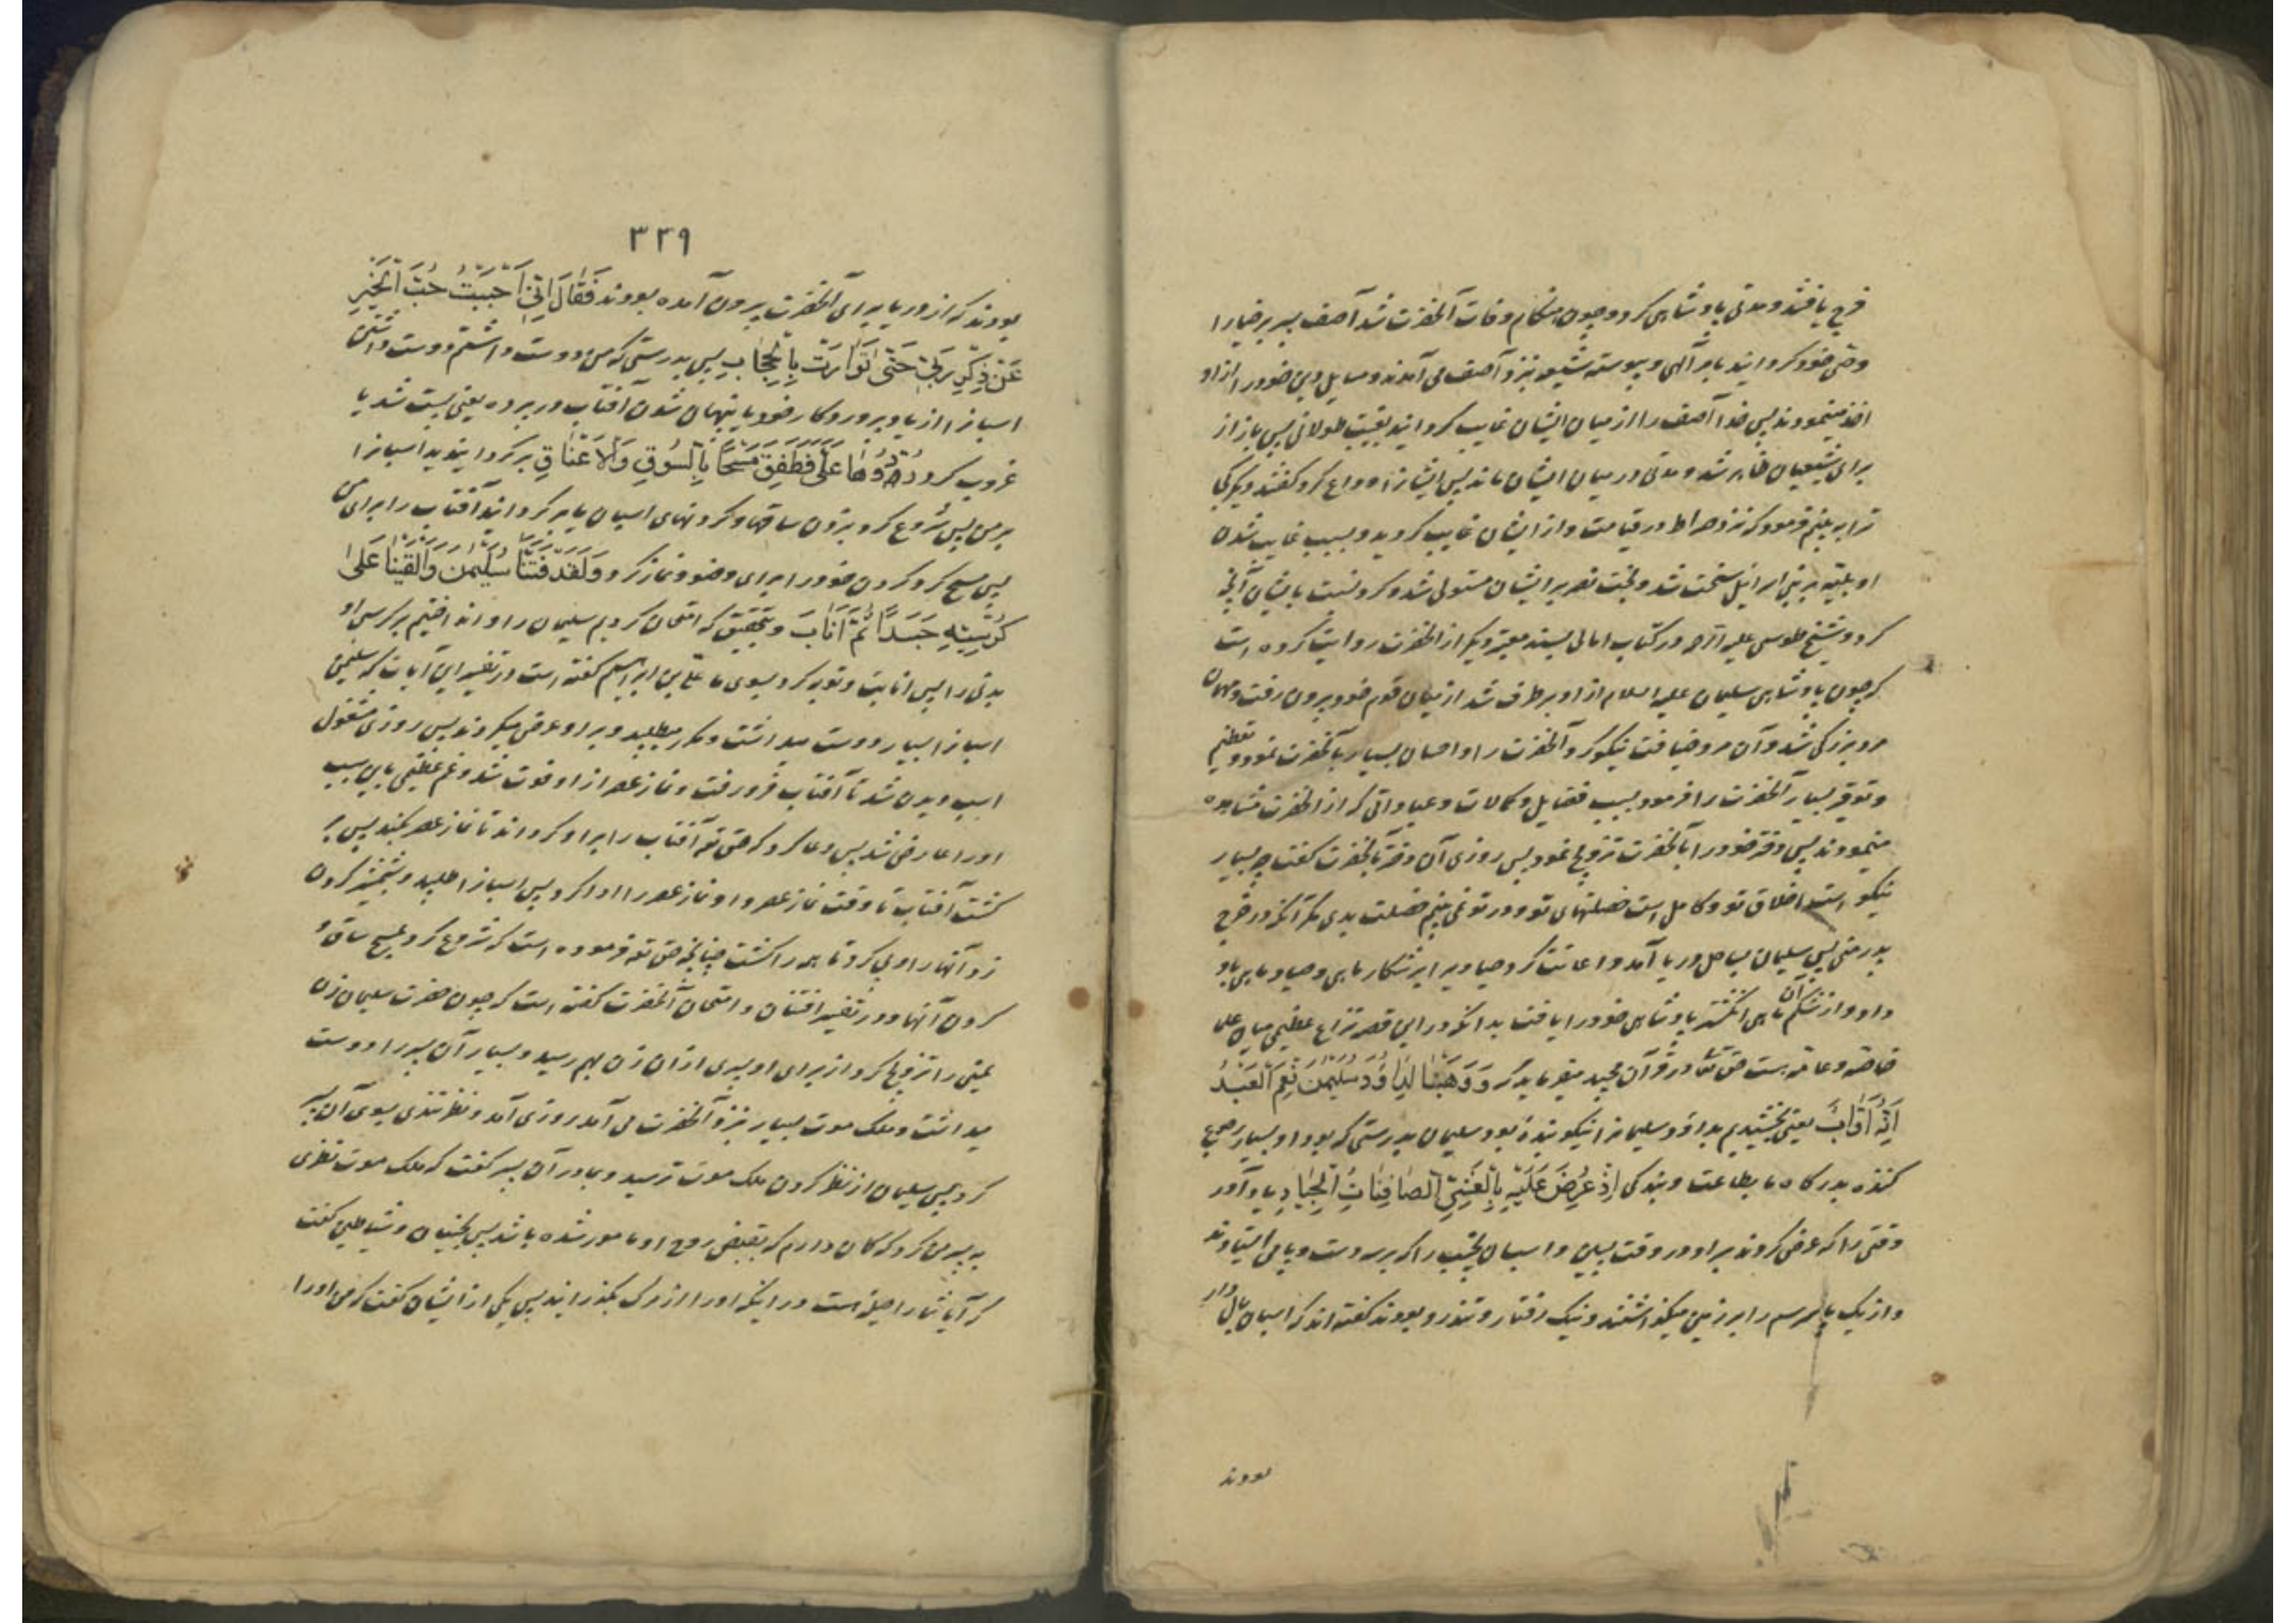 فرج یافتند و مدتی پادشاهی کرد و چون هنگام وفات آنحضرت شد آصف پسر برخیا را
وصی خود گردانید بامر آلهی و پیوسته شیعیان نزد آصف می آمدند و مسایل دین خود را از او
اخذ مینمودند پس خدا آصف را از میان ایشان غایب گردانید بغیبت طولانی پس باز از
برای شیعیان ظاهر شد و مدتی در میان ایشان ماند پس ایشانرا وداع کرد گفتند دیگر کی
ترا به بینم فرمود که نزد صراط در قیامت و از ایشان غایب گردید و بسبب غایب شدن
او بلیّه بر بنی اسرائیل سخت شد و بخت نصر بر ایشان مستولی شد و کرد نسبت بایشان آنچه
کرد و شیخ طوسی علیه الرحمه در کتاب امالی بسند معتبر دیگر از انحضرت روایت کرده است
که چون پادشاهی سلیمان علیه السلام از او برطرف شد از میان قوم خود بیرون رفت و مهمان
مرد بزرگی شد و آن مرد ضیافت نیکو کرد آنحضرت را و احسان بسیار بآنحضرت نمود و تعظیم
و توقیر بسیار آنحضرت را فرمود بسبب فضایل و کمالات و عباداتی که از انحضرت مشاهده
مینمودند پس دختر خود را بآنحضرت تزویج نمود پس روزی آن دختر بآنحضرت گفت چه بسیار
نیکو است اخلاق تو و کامل است خصلتهای تو و در تو نمی بینم خصلت بدی مگر آنکه در خرج
پدر منی پس سلیمان بساحل دریا آمد و اعانت کرد صیادیرا بر شکار ماهی و صیاد ماهی باو
داد و از شکم آن ماهی انگشتر پادشاهی خود را یافت بدانکه در این قصه نزاع عظیمی میان علمای
خاصّه و عامّه هست حق تعالی در قرآن مجید میفرماید که وَوَهَبْنَا لِدَاوُدَ سُلَيْمٰنَ نِعْمَ الْعَبْدُ
اِنَّهُ اَوَّابٌ یعنی بخشیدیم بداود سلیمانرا نیکو بندۀ بود سلیمان بدرستی که بود او بسیار رجوع
کننده بدرگاه ما بطاعت و بندگی اِذْ عُرِضَ عَلَيْهِ بِالْعَشِيِّ الصَّافِنَاتُ الْجِيَادُ بیاد آور
وقتی را که عرض کردند بر او در وقت پسین و اسبان نجیب را که بر سه دست و پا می ایستادند
و از یک پا سر سم را بر زمین میگذاشتند و نیک رفتار و تندرو بودند گفته اند که اسبان بال دار
بودند
۳۲۹
بودند که از دریا برای آنحضرت بیرون آمده بودند فَقَالَ اِنِّي اَحْبَبْتُ حُبَّ الْخَيْرِ
عَنْ ذِكْرِ رَبِّي حَتّٰى تَوَارَتْ بِالْحِجَابِ پس بدرستی که من دوست داشتم دوست داشتن
اسبانرا از یاد پروردگار خود یا پنهان شدن آفتاب در پرده یعنی پست شد یا
غروب کرد رُدُّوهَا عَلَيَّ فَطَفِقَ مَسْحًا بِالسُّوقِ وَالْاَعْنَاقِ برگردانیدید اسبانرا
بر من پس شروع کرد بزدن ساقها و گردنهای اسبان یا برگردانید آفتاب را برای من
پس مسح کرد گردن خود را برای وضو و نماز کرد وَلَقَدْ فَتَنَّا سُلَيْمٰنَ وَاَلْقَيْنَا عَلٰى
كُرْسِيِّهِ جَسَدًا ثُمَّ اَنَابَ و بتحقیق که امتحان کردیم سلیمان را و انداختیم بر کرسی او
بدنی را پس انابت و توبه کرد بسوی ما علی بن ابراهیم گفته است در تفسیر این آیات که سلیمن
اسبانرا بسیار دوست میداشت و مکرر میطلبید و بر او عرض میکردند پس روزی مشغول
اسب دیدن شد تا آفتاب فرو رفت و نماز عصر از او فوت شد و غم عظیمی باین سبب
او را عارض شد پس دعا کرد که حق تع آفتاب را بر او گرداند تا نماز عصر بکند پس بر
گشت آفتاب تا وقت نماز عصر و او نماز عصر را ادا کرد پس اسبانرا طلبید و بشمشیر گردن
زد آنها را و پی کرد تا همه را کشت چنانچه حق تع فرموده است که شروع کرد بمسح ساق و
گردن آنها و در تفسیر افتتان و امتحان آنحضرت گفته است که چون حضرت سلیمان زن
یمنی را تزویج کرد از برای او پسری از ان زن بهم رسید و بسیار آن پسر را دوست
میداشت و ملک موت بسیار نزد آنحضرت می آمد روزی آمد و نظر تندی بسوی آن پسر
کرد پس سلیمان از نظر کردن ملک موت ترسید و بمادر آن پسر گفت که ملک موت نظری
به پسر من کرد که گمان دارم که بقبض روح او مامور شده باشد پس بجنیان و شیاطین گفت
که آیا شما را حیله هست در اینکه او را از مرگ بگذرانید پس یکی از ایشان گفت که من او را